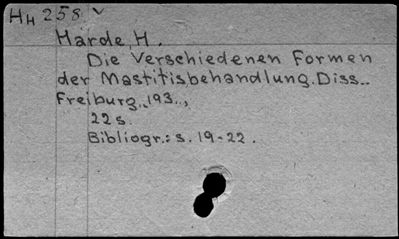 HH 258 v
Harde, H.
Die Verschiedenen Formen
der Mastitisbehandlung. Diss..
Freiburg, 193..,
22 s.
Bibliogr.: s. 19-22.